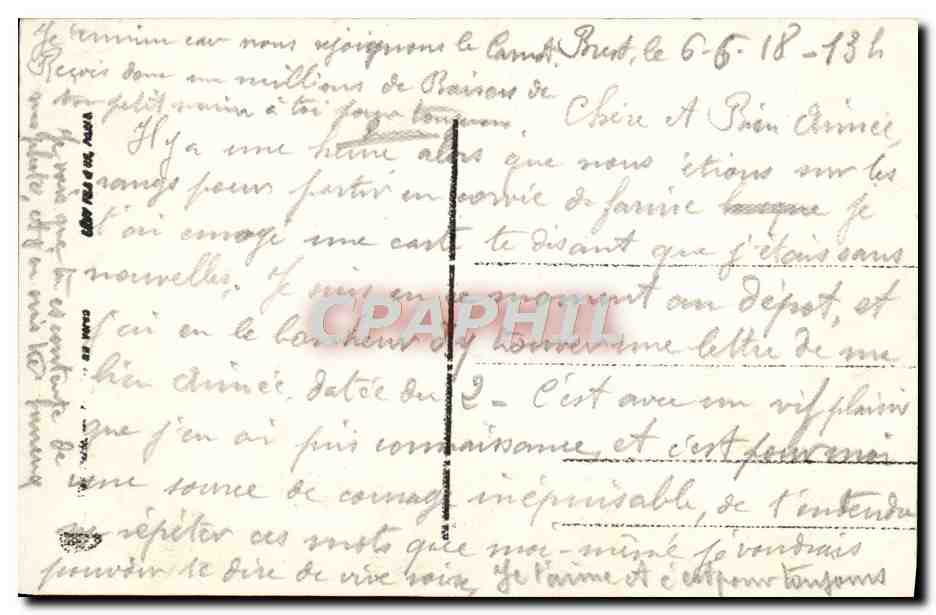 Brest, le 6-6-18-13h
Chère et Bien Aimée,
Il y a une heure alors que nous étions sur les
rangs pour partir en corvée de farine je
t'ai envoyé une carte te disant que j'étais sans
nouvelles. Je suis en ce moment au dépot, et
j'ai eu le bonheur d'y trouver une lettre de ma
bien Aimée datée du 2 - C'est avec un vif plaisir
que j'en ai pris connaissance, et c'est pour moi
une source de courage inépuisable, de t'entendre
me répéter ces mots que moi-même je voudrais
pouvoir te dire de vive voix, Je t'aime et c'est pour toujours
Je termine car nous rejoignons le
Reçois donc un millions de Baisers de
ton petit à toi pour toujours.
Je vois que tu es contente de
ma photo, et j'en suis très
CPAPHIL